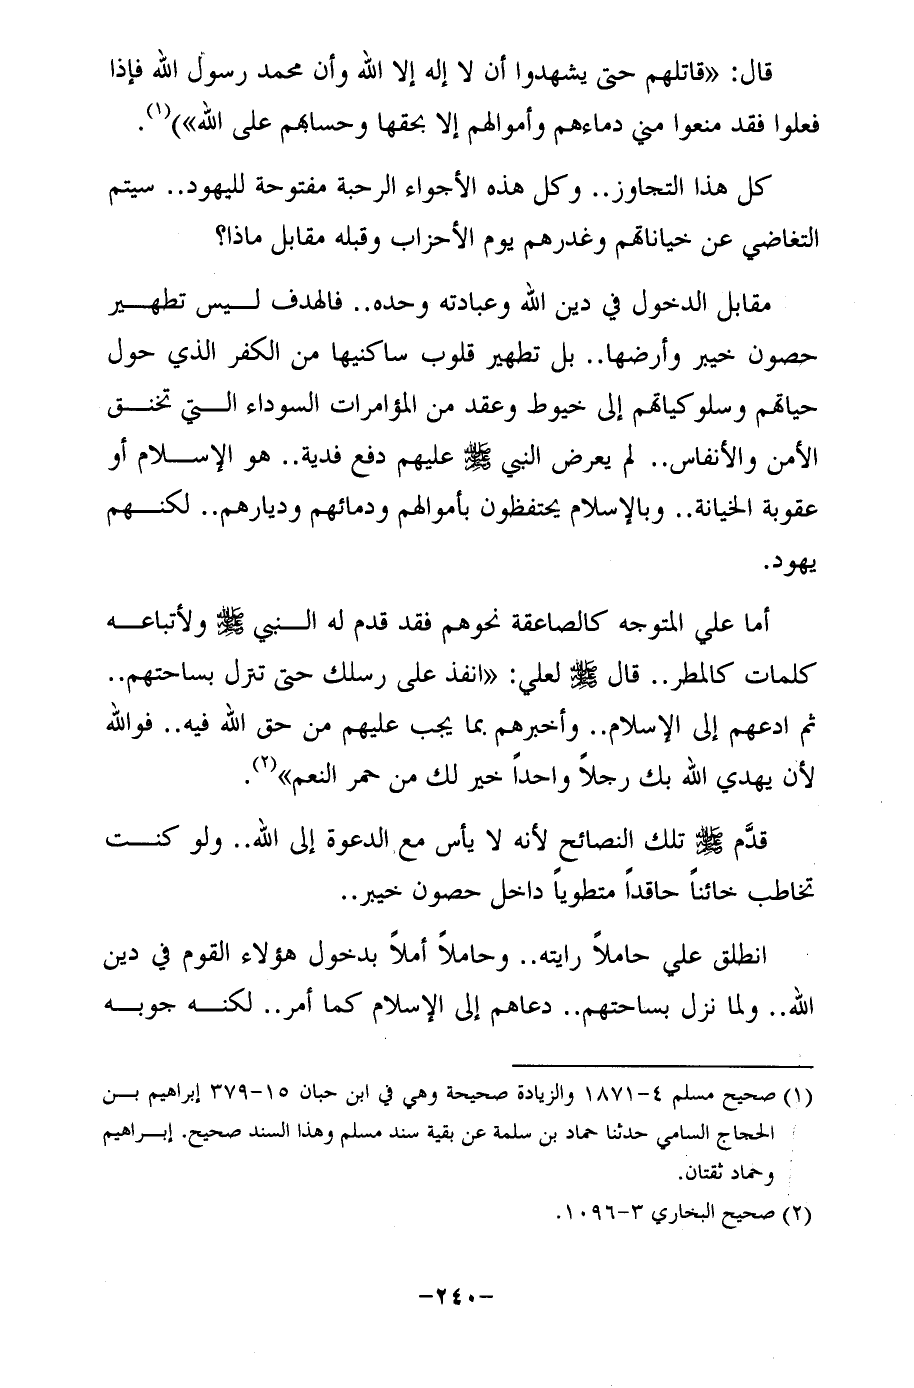 قال: «قاتلهم حتى يشهدوا أن لا إله إلا الله وأن محمد رسول الله فإذا
فعلوا فقد منعوا مني دماءهم وأموالهم إلا بحقها وحسابهم على الله»)(١).
كل هذا التجاوز.. وكل هذه الأجواء الرحبة مفتوحة لليهود.. سيتم
التغاضي عن خياناتهم وغدرهم يوم الأحزاب وقبله مقابل ماذا؟
مقابل الدخول في دين الله وعبادته وحده.. فالهدف ليس تطهير
حصون خيبر وأرضها.. بل تطهير قلوب ساكنيها من الكفر الذي حول
حياتهم وسلوكياتهم إلى خيوط وعقد من المؤامرات السوداء التي تخنق
الأمن والأنفاس.. لم يعرض النبي ﷺ عليهم دفع فدية.. هو الإسلام أو
عقوبة الخيانة.. وبالإسلام يحتفظون بأموالهم ودمائهم وديارهم.. لكنهم
يهود.
أما علي المتوجه كالصاعقة نحوهم فقد قدم له النبي ﷺ ولأتباعه
كلمات كالمطر.. قال ﷺ لعلي: «انفذ على رسلك حتى تنزل بساحتهم..
ثم ادعهم إلى الإسلام.. وأخبرهم بما يجب عليهم من حق الله فيه.. فوالله
لأن يهدي الله بك رجلاً واحداً خير لك من حمر النعم»(٢).
قدَّم ﷺ تلك النصائح لأنه لا يأس مع الدعوة إلى الله.. ولو كنت
تخاطب خائناً حاقداً متطوياً داخل حصون خيبر..
انطلق علي حاملاً رايته.. وحاملاً أملاً بدخول هؤلاء القوم في دين
الله.. ولما نزل بساحتهم.. دعاهم إلى الإسلام كما أمر.. لكنه جوبه
(١) صحيح مسلم ٤-١٨٧١ والزيادة صحيحة وهي في ابن حبان ١٥-٣٧٩ إبراهيم بن
الحجاج السامي حدثنا حماد بن سلمة عن بقية سند مسلم وهذا السند صحيح. إبراهيم
وحماد ثقتان.
(٢) صحيح البخاري ٣-١٠٩٦.
-٢٤٠-